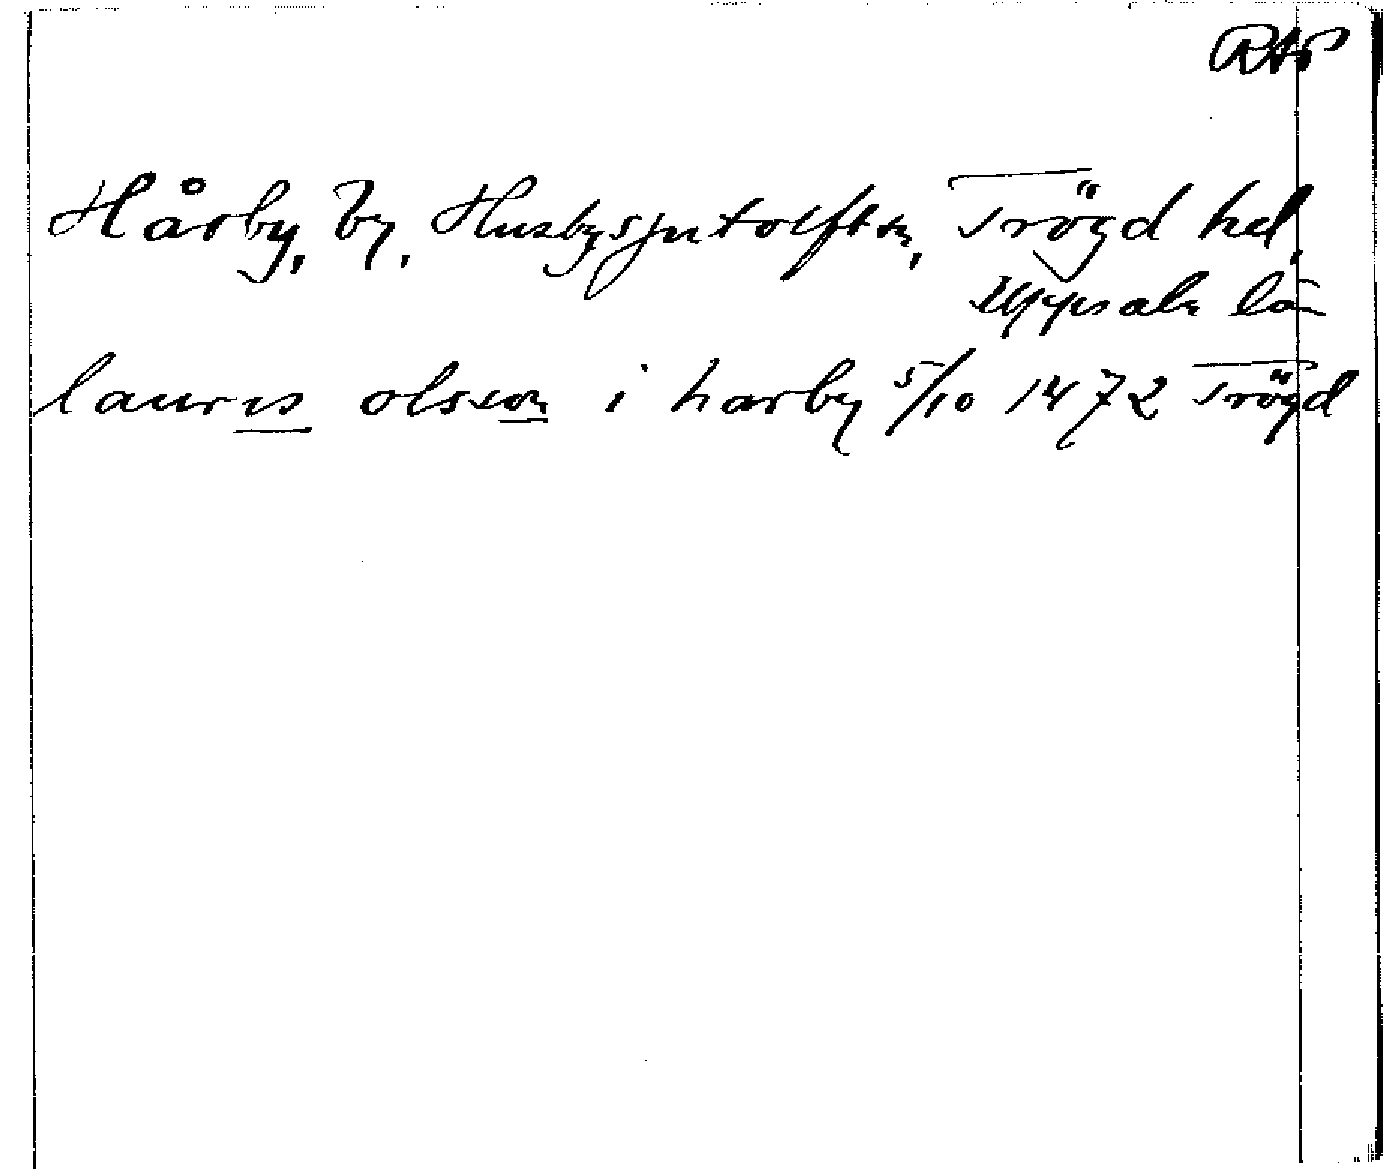 RAP
Hårby, by, Husbysjutolft sn, Trögd hd,
Uppsala län
lauris olsson i harby 5/10 1472 Trögd